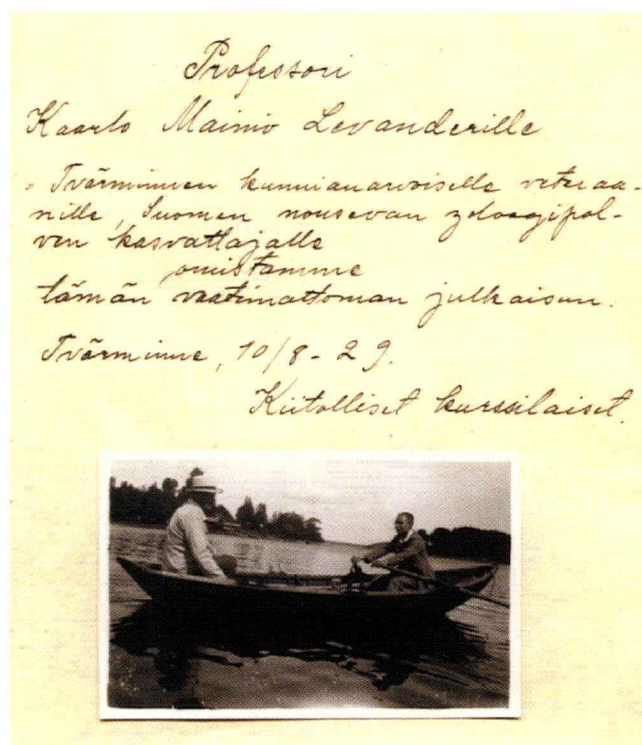 Professori
Kaarlo Mainio Levanderille
Tvärminnen kunnianarvoiselle veteraa-
nille, Suomen nousevan zoloogipol-
ven kasvattajalle
omistamme
tämän vaatimattoman julkaisun.
Tvärminne, 10/8-29.
Kiitolliset kurssilaiset.